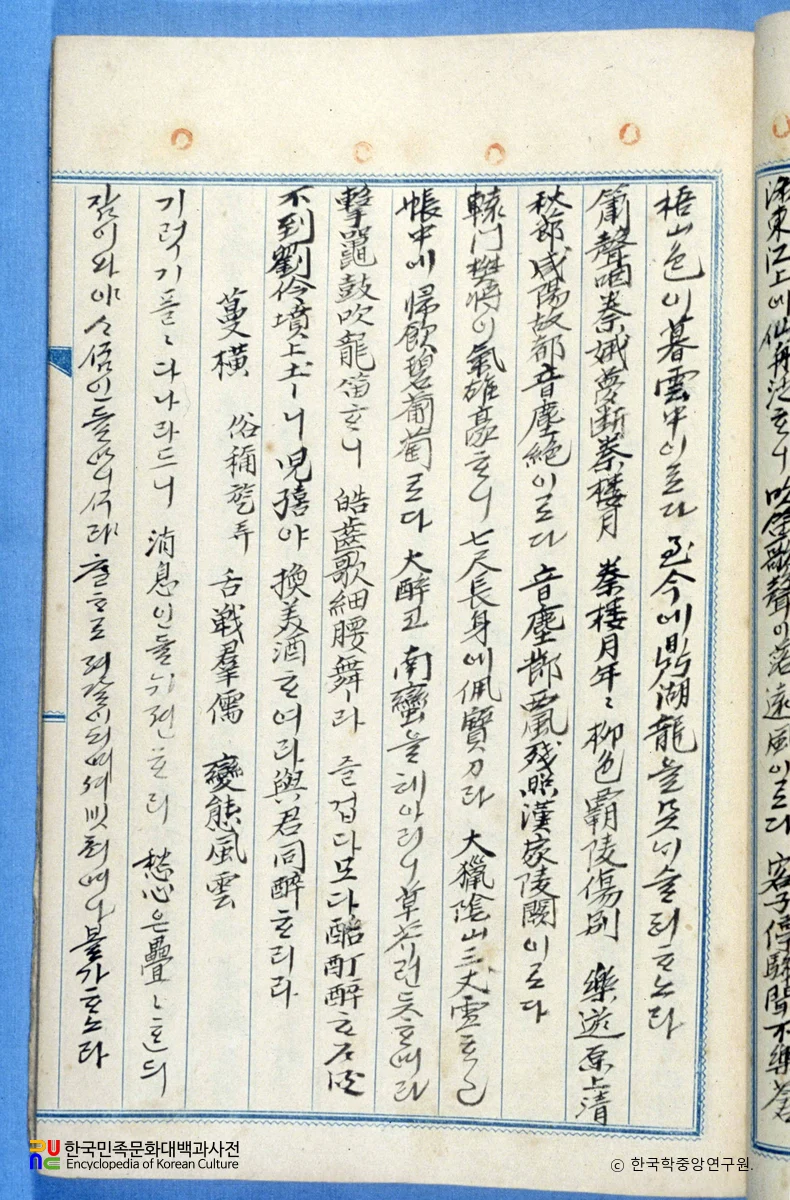 梧山色이暮雲中이로다 至今에鼎湖龍을못뇌슬허ᄒᆞ노라
簫聲咽秦娥夢斷秦樓月 秦樓月年〻柳色灞陵傷別 樂遊原上淸
秋節咸陽故都音塵絶이로다 音塵絶西風殘照漢家陵闕이로다
轅門樊將이氣雄豪ᄒᆞ니 七尺長身에佩寶刀라 大獵陰山三丈雪ᄒᆞ고
帳中에歸飮碧葡萄로다 大醉고 南蠻을헤아리니草芥런듯ᄒᆞ여라
擊鼉鼓吹龍笛ᄒᆞ니 皓齒歌細腰舞ㅣ라 즐겁다모다酩酊醉ᄒᆞ
不到劉伶墳上土ㅣ니 兒禧야 換美酒ᄒᆞ여라與君同醉ᄒᆞ리라
蔓橫 俗稱 舌戰羣儒 變態風雲
기럭기풀〻다나라드니 消息인들뉘젼ᄒᆞ리 愁心은疊〻ᄒᆞᆫ듸
잠이와야 ᄭᅮᆷ인들 아니ᄭᅮ랴 볼가ᄒᆞ노라
洛東江上에仙舟泛ᄒᆞ니吹笙歌聲이落遠風이로다 客子停驂聞不樂蒼
한국민족문화대백과사전
Encyclopedia of Korean Culture
ⓒ 한국학중앙연구원.